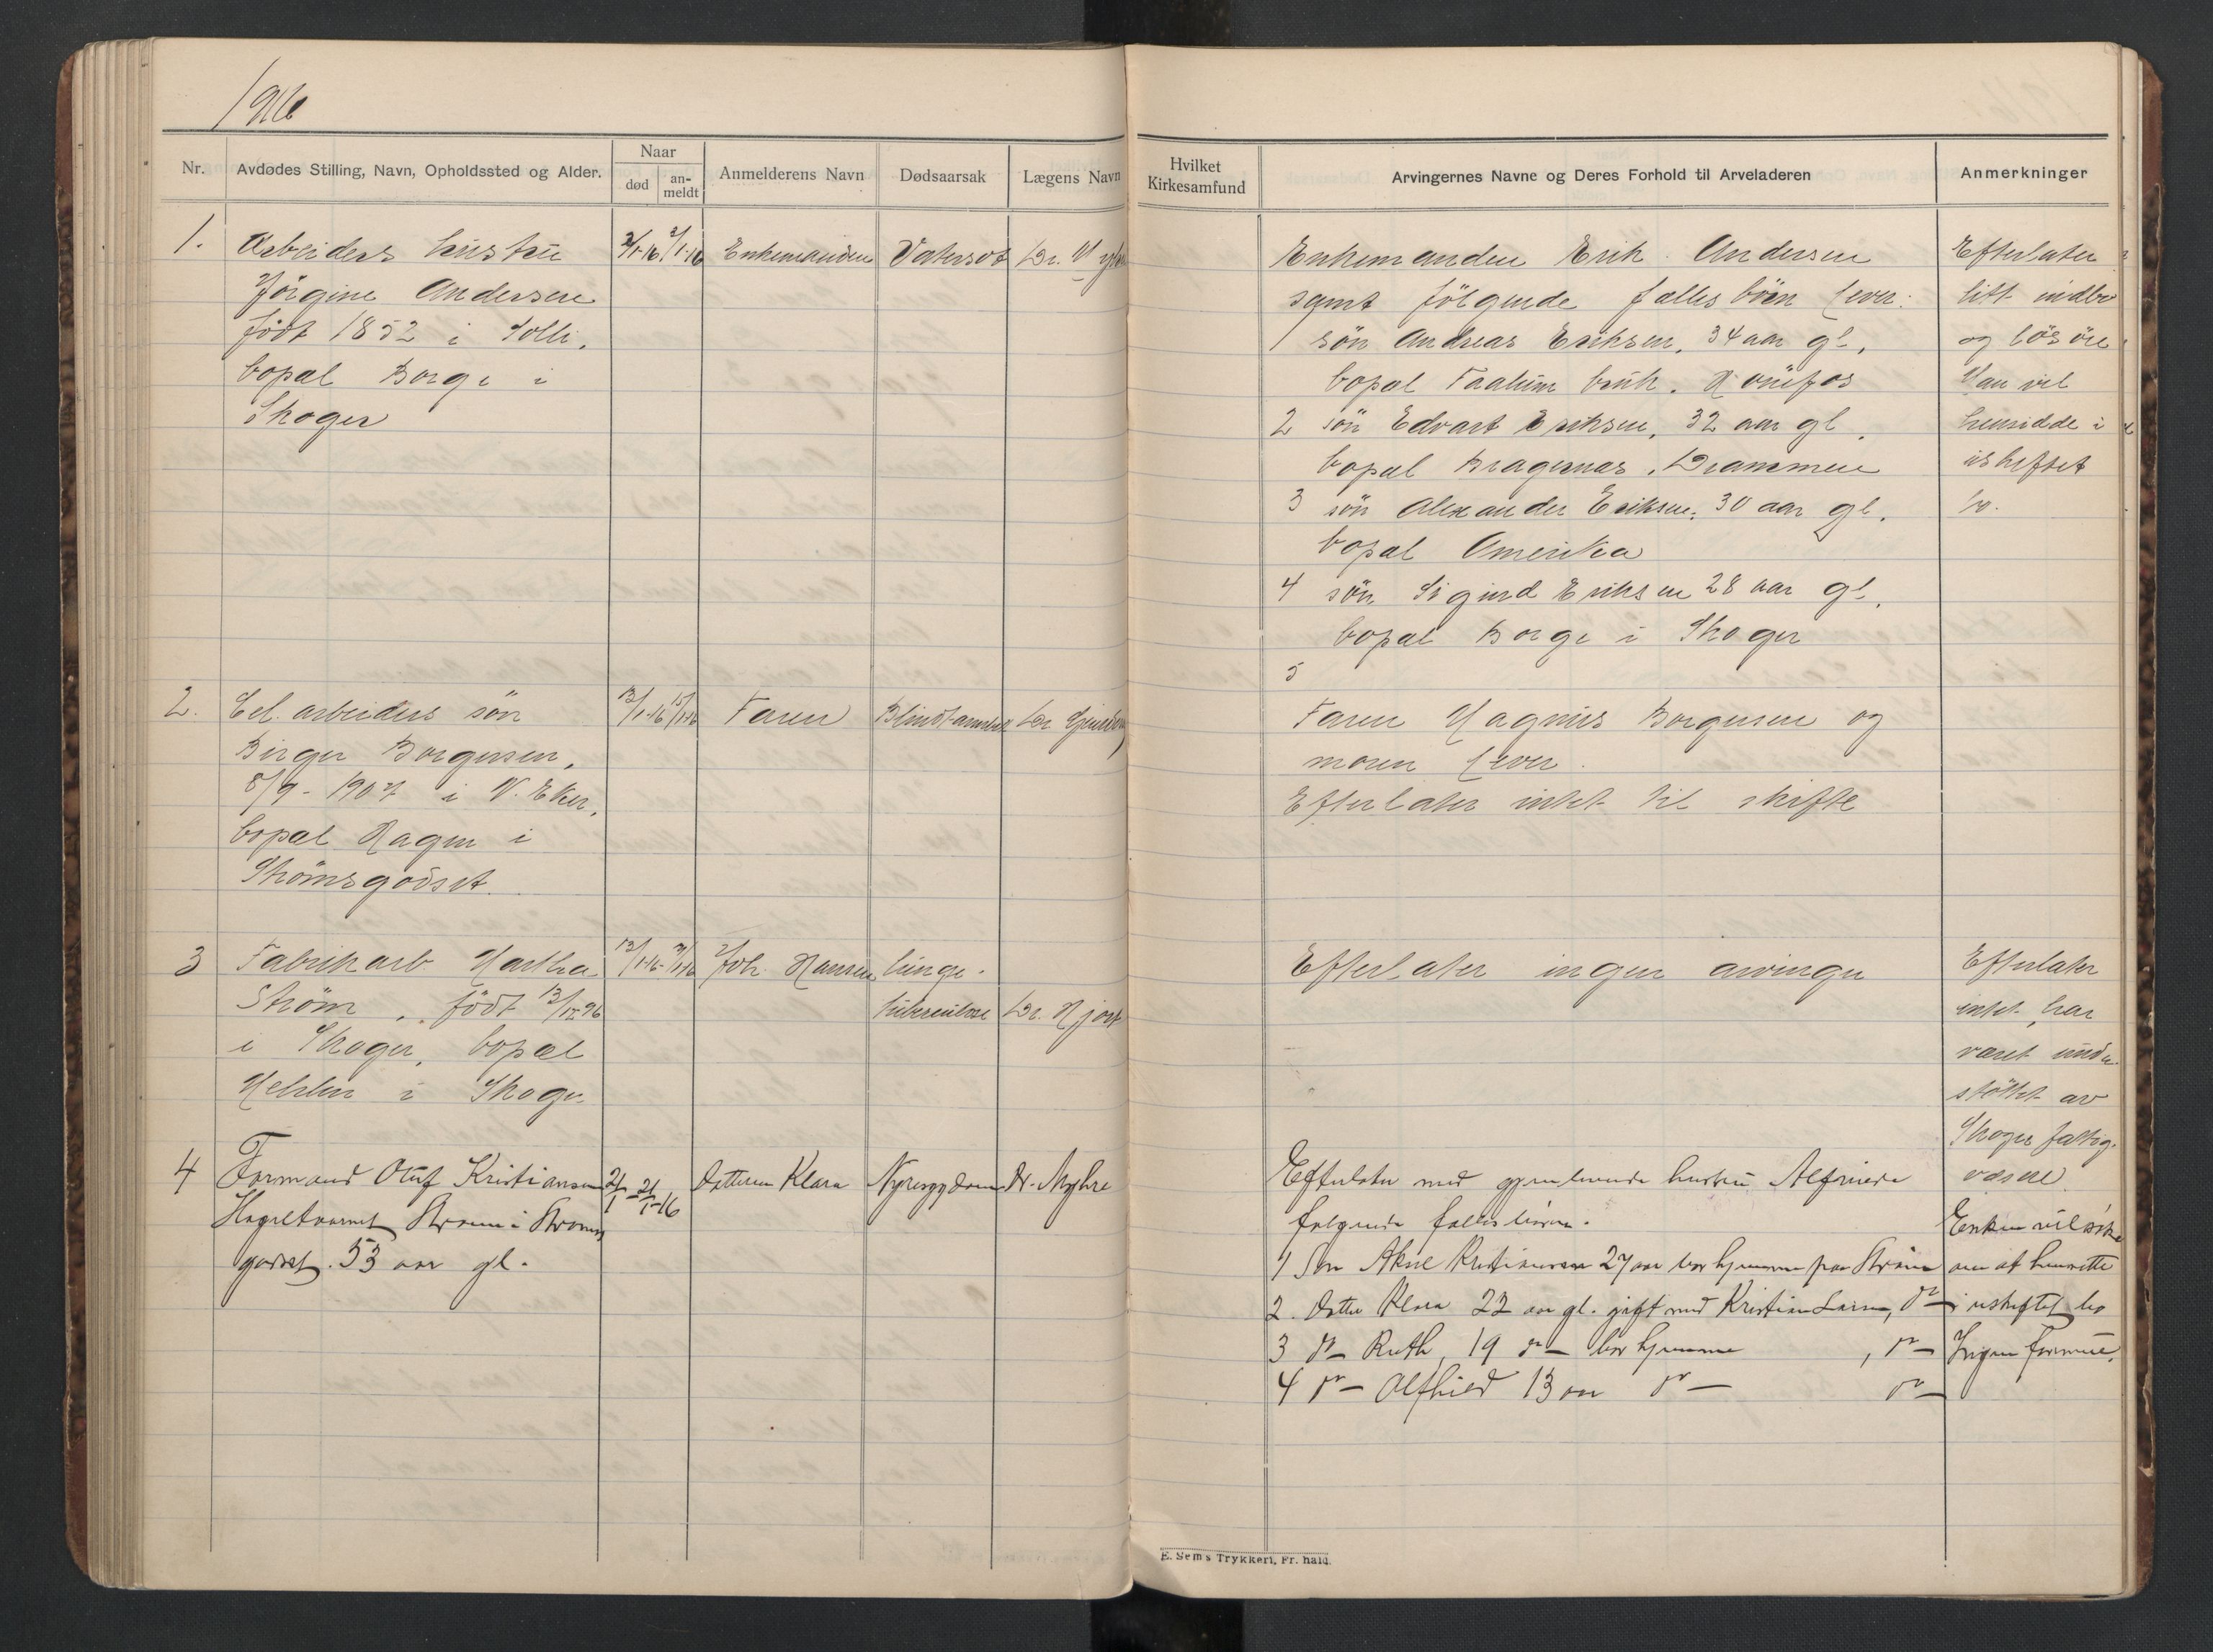 1916
Nr.
Avdødes Stilling, Navn, Opholdssted og Alder.
Naar
død
an-
meldt
Anmelderens Navn
Dødsaarsak
Lægens Navn
Hvilket
Kirkesamfund
Arvingernes Navne og Deres Forhold til Arveladeren
Anmerkninger
1. Arbeiders hustru
Jörgine Andersen
födt 1852 i Solli,
bopæl Borge i
Skoger
2/1-16 Enkemanden Vatersot Dr.
Enkemanden Erik Andersen
samt fölgende fælles börn lever:
1 sön Andreas Eriksen, 34 aar gl,
bopæl Faalum bruk. Hönefos
2 sön Edvart Eriksen, 32 aar gl.
bopæl Bragernæs, Drammen
3 sön Alexander Eriksen, 30 aar gl.
bopæl Amerika
4 sön Sigurd Eriksen 28 aar gl.
bopæl Borge i Skoger
5
Efterlater
litt indbo
og lösöre
Man vil
hensidde i
uskiftet
bo.
2. Cel. arbeiders sön
Birger Borgersen,
8/9-1907 i N. Eker,
bopæl Hagen i
Strömsgodset.
13/1-16 15/1-16 Faren Blindtarmbet. Dr.
Faren Magnus Borgersen og
moren lever.
Efterlater intet til skifte
3 Fabrikarb. Martha
Ström, födt 13/12-96
i Skoger, bopæl
i Skoger
13/1-16 Joh. Hansen lunge-
tuberculose Dr. Hjort
Efterlater ingen arvinger
Efterlater
intet, har
været under-
stöttet av
Skoger fattig-
væsen
4 Formand Oluf Kristiansen
Strøm i Strøms
godset. 53 aar gl.
21/1 21/1-16 Datteren Klara Nyresygdom Dr. Myhre
Efterlater med gjenlevende hustru
følgende fælles börn.
1 Søn Kristiansen 27 aar bor hjemme paa Ström
2. Datter Klara 22 aar gl. gift med Kristian Larsen, do-
3 do- Ruth, 19 do- bor hjemme, do-
4 do- Alfhild 13 aar do- do-
Enken vil söke
om at hensitte
i uskiftet bo
Ingen formue.
E. Sem's Trykkeri, Fr. hald.